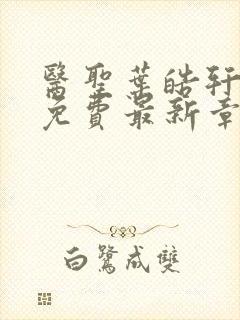 醫聖葉皓軒
免費最新章
白鷺成雙